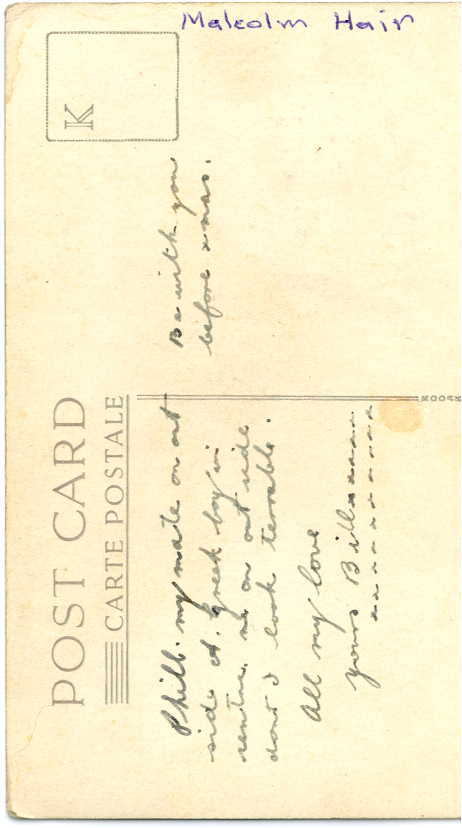 Malcolm Hair
K
POST CARD
CARTE POSTALE
Phill. my mate on out
side A. greek boy in
sentre. me on out side
dont I look terrable.
All my love
yours Bill xxxxx
xxxxxxxxxx
Be with you
before xmas.